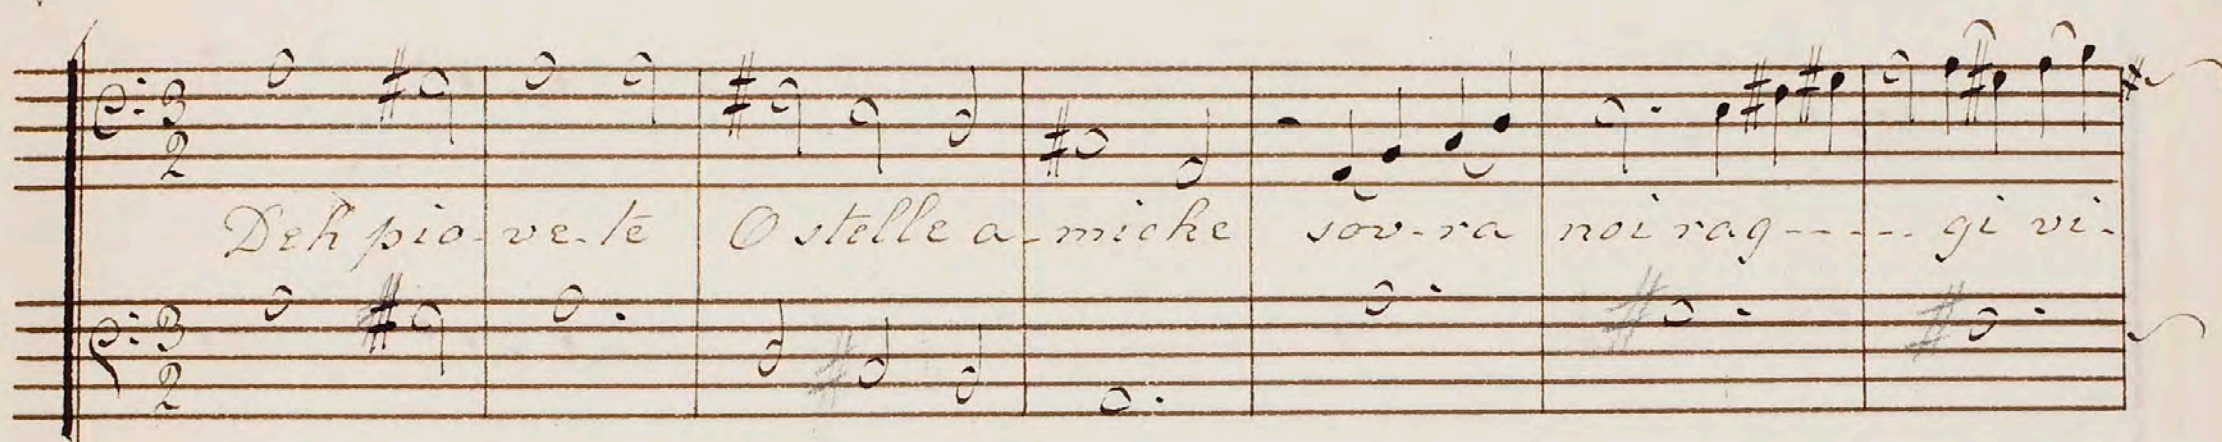 3
2
Deh pio-ve-te O stelle a-miche sov-ra noi rag----- gi vi-
3
2